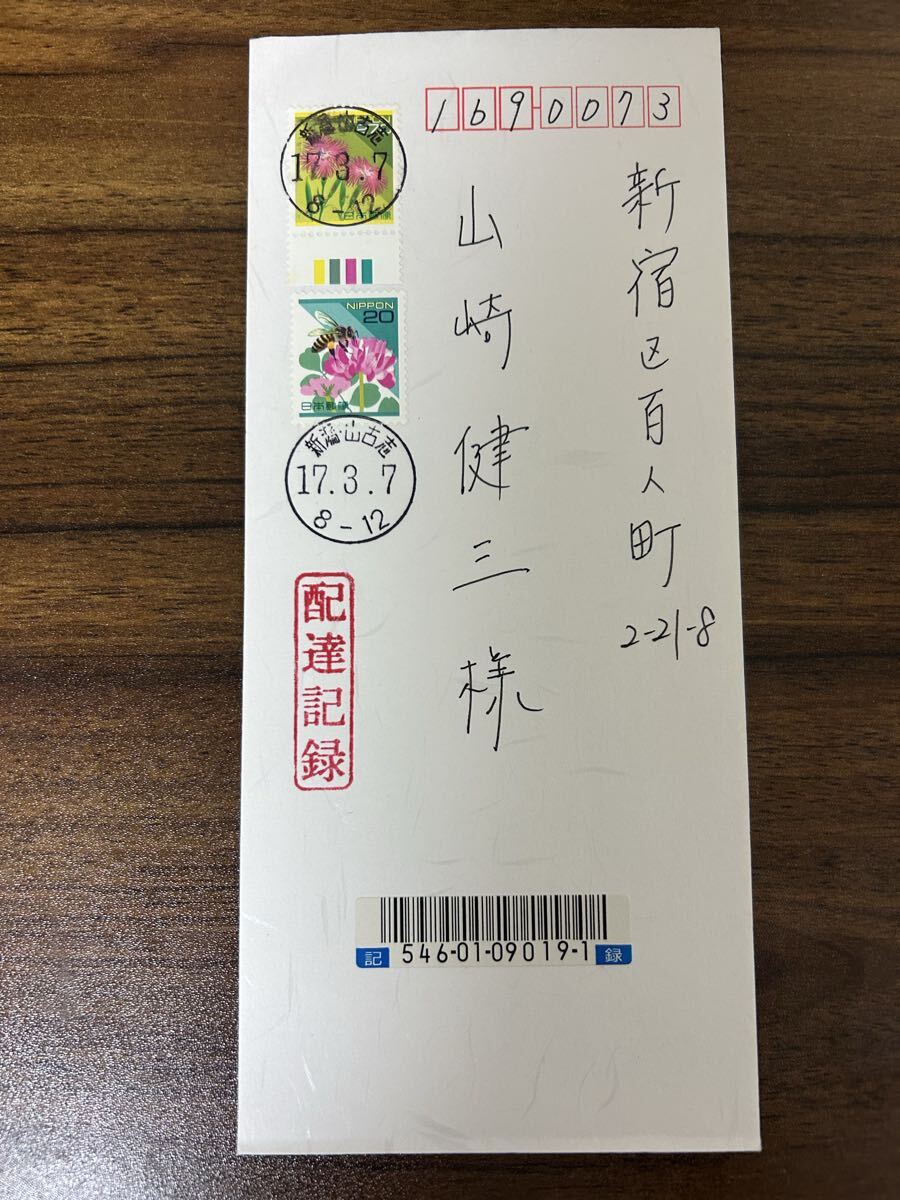 1690073
新宿区百人町
2-21-8
山崎健三様
新潟・山古志
17.3.7
8-12
日本郵便
NIPPON
20
日本郵便
新潟・山古志
17.3.7
8-12
配達記録
記 546-01-09019-1 録